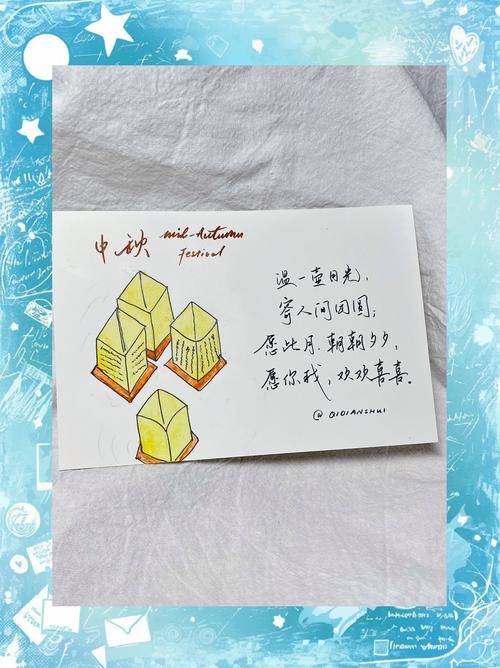 中秋 Mid-Autumn
Festival
温一壶月光，
寄人间团圆；
愿此月，朝朝夕夕，
愿你我，欢欢喜喜。
@QIDIANSHUI